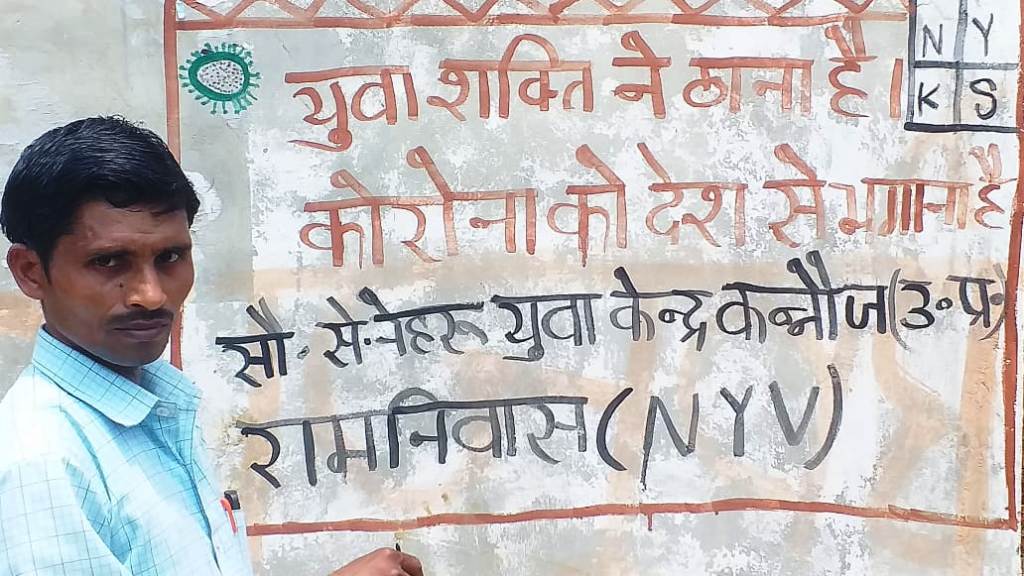 युवा शक्ति ने ठाना है।
N Y
K S
कोरोना को देश से भगाना है
सौ. से. नेहरू युवा केन्द्र कन्नौज (उ॰ प्र॰)
रामनिवास (NYV)